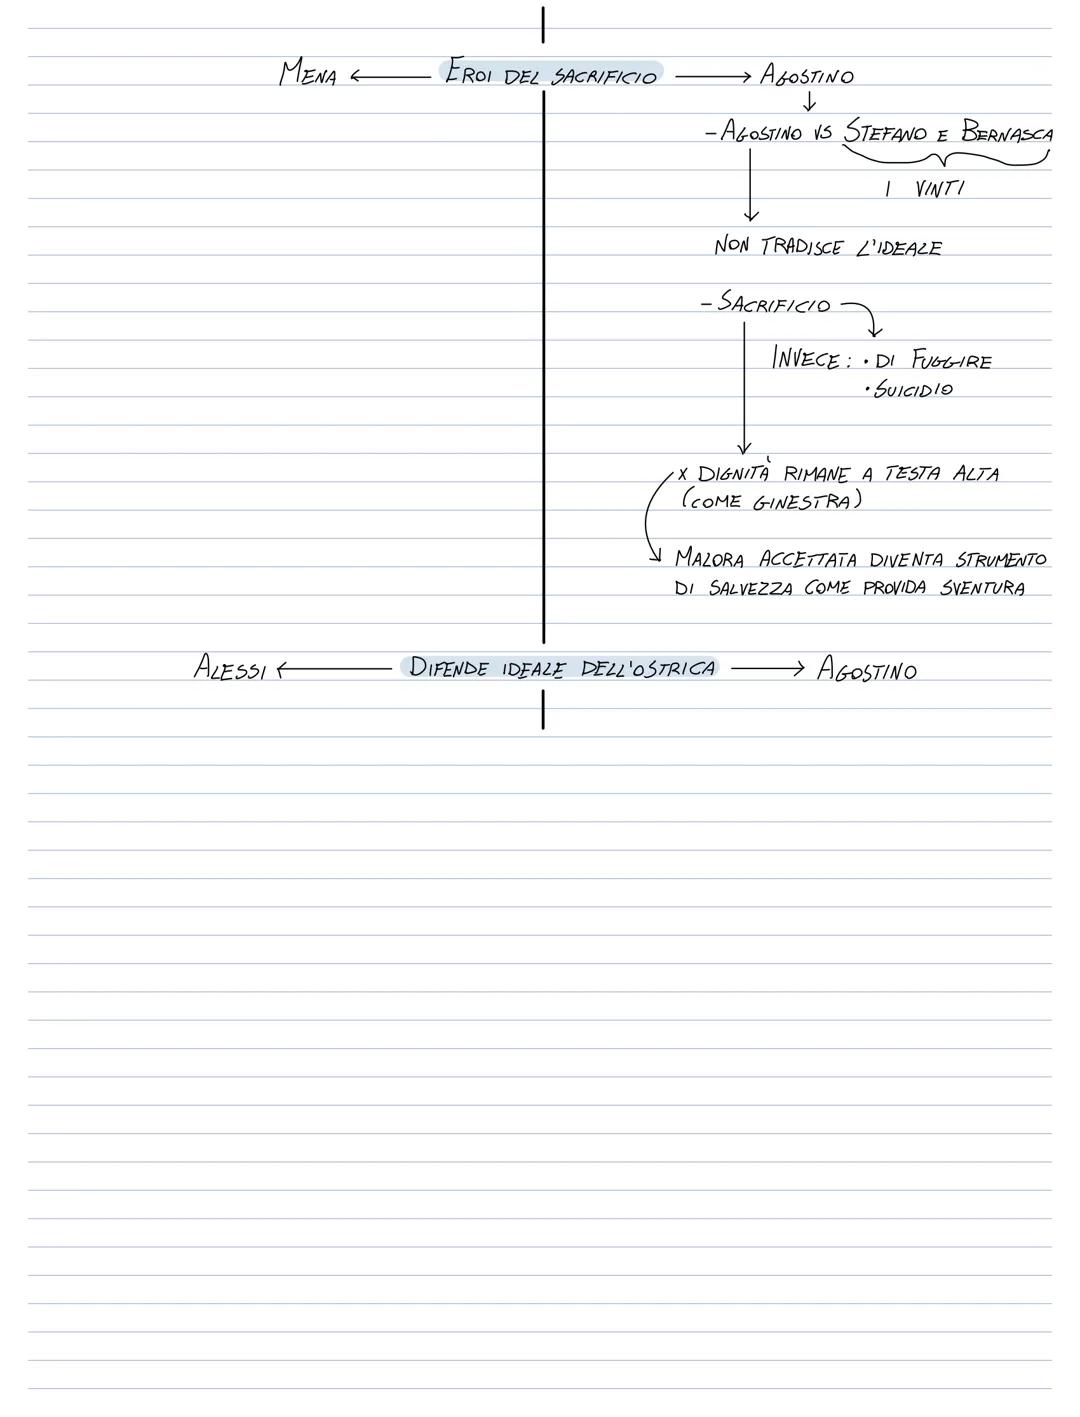 MENA ← EROI DEL SACRIFICIO → AGOSTINO
↓
- AGOSTINO VS STEFANO E BERNASCA
I VINTI
NON TRADISCE L'IDEALE
- SACRIFICIO
INVECE: • DI FUGGIRE
• SUICIDIO
X DIGNITÀ RIMANE A TESTA ALTA
(COME GINESTRA)
MALORA ACCETTATA DIVENTA STRUMENTO
DI SALVEZZA COME PROVIDA SVENTURA
ALESSI ← DIFENDE IDEALE DELL'OSTRICA → AGOSTINO